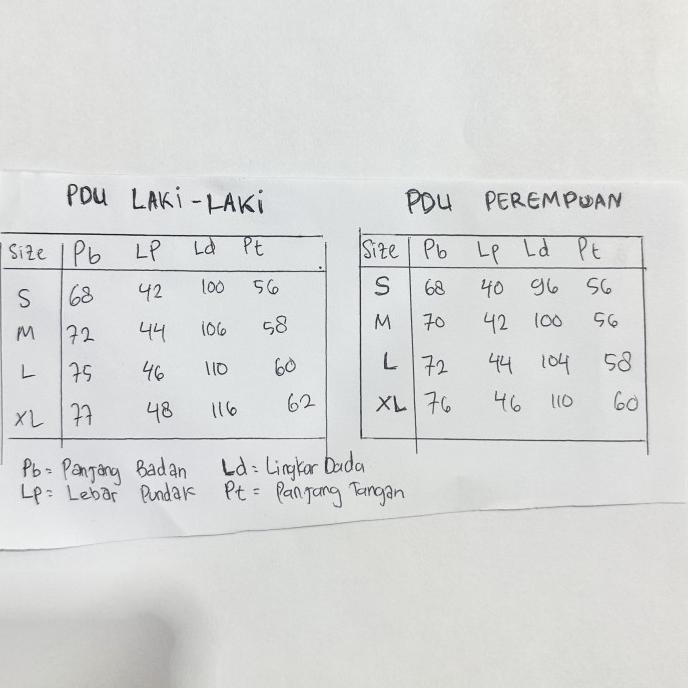 PDU LAKi-LAKi
Size Pb LP Ld Pt
S 68 42 100 56
M 72 44 106 58
L 75 46 110 60
XL 77 48 116 62
PDU PEREMPUAN
Size Pb Lp Ld Pt
S 68 40 96 56
M 70 42 100 56
L 72 44 104 58
XL 76 46 110 60
Pb = Panjang Badan Ld = Lingkar Dada
Lp = Lebar Pundak Pt = Panjang Tangan